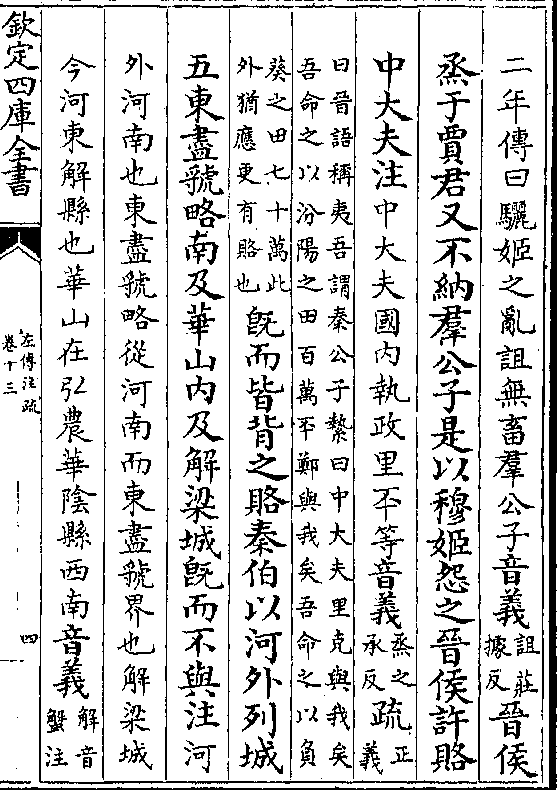 二年傳曰驪姬之亂詛無畜羣公子音義詛莊據反晉侯
烝于賈君又不納羣公子是以穆姬怨之晉侯許賂
中大夫注中大夫國內執政里丕等音義烝之承反疏正義
曰晉語稱夷吾謂秦公子縶曰中大夫里克與我矣
吾命之以汾陽之田百萬丕鄭與我矣吾命之以負
葵之田七十萬此
外猶應更有賂也既而皆背之賂秦伯以河外列城
五東盡虢略南及華山內及解梁城既而不與注河
外河南也東盡虢略從河南而東盡虢界也解梁城
今河東解縣也華山在弘農華陰縣西南音義解音蟹注
欽定四庫全書
左傳注疏
卷十三
四